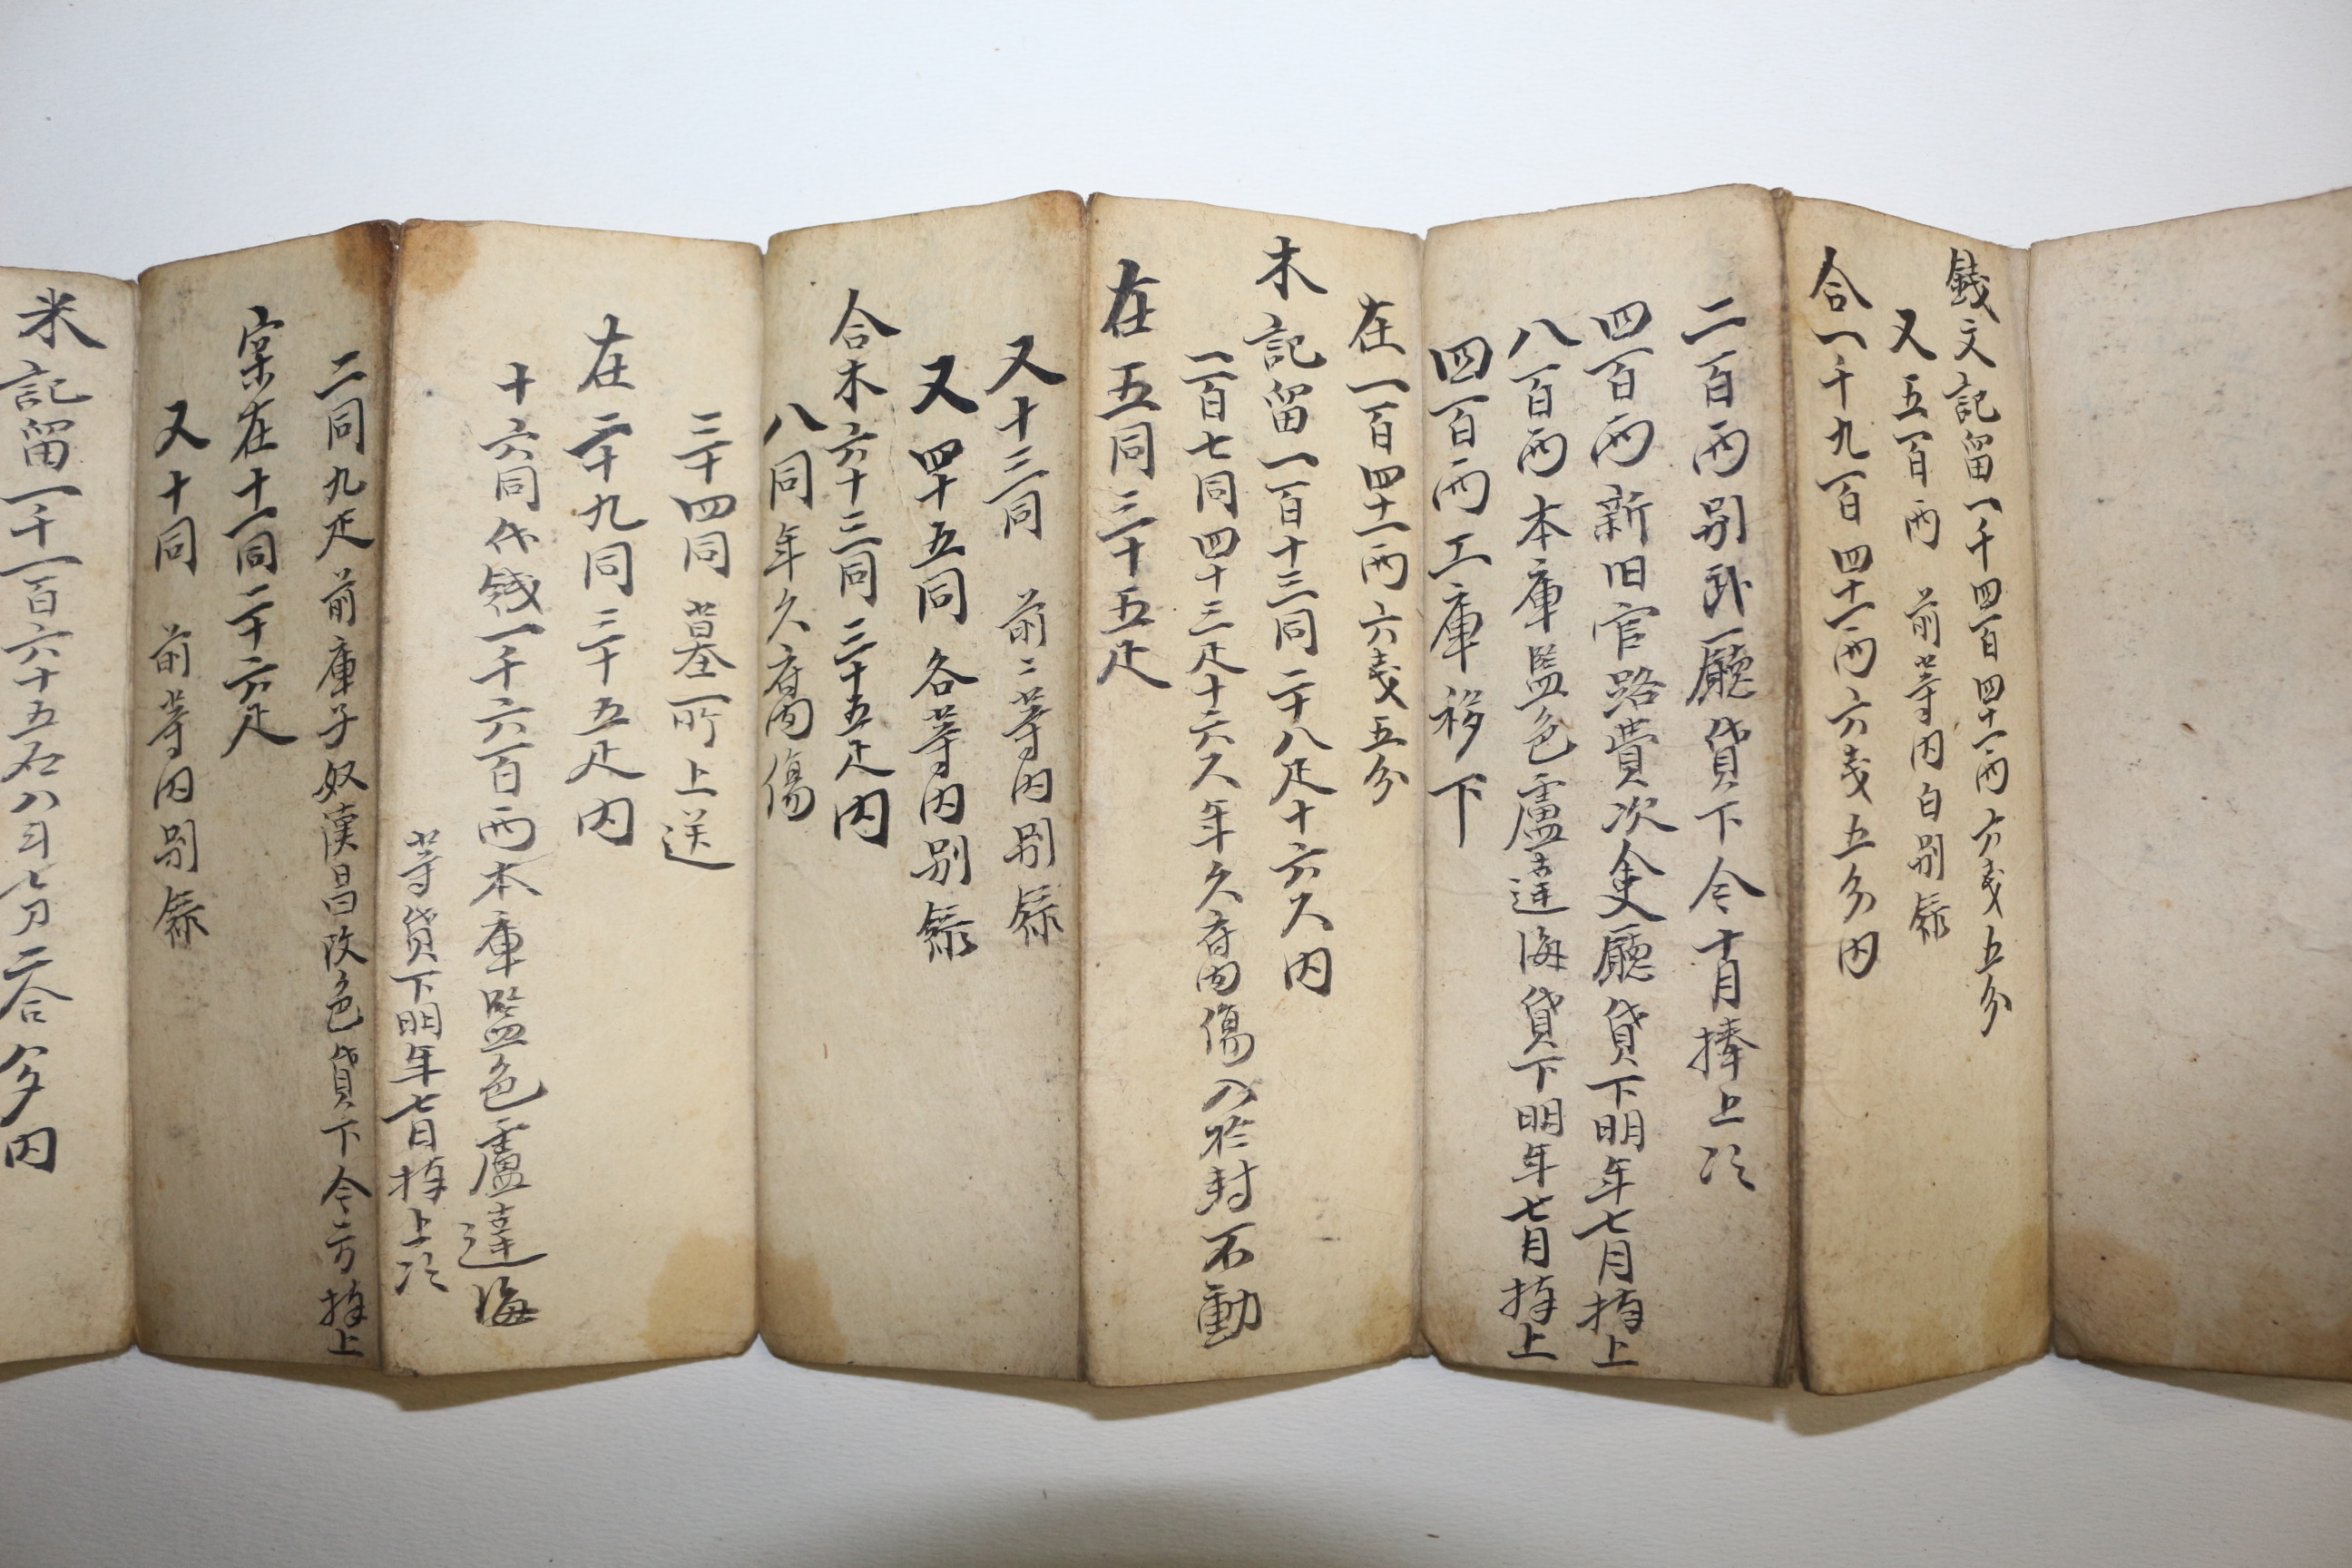 錢文記留一千四百四十一兩六戔五分
又五百兩 前等内白別錄
合一千九百四十一兩六戔五分内
二百兩別卧廳貸下今十月捧上次
四百兩新旧官路費次余吏廳貸下明年七月捧上
八百兩本庫監色盧達海貸下明年七月捧上
四百兩工庫移下
在一百四十一兩六戔五分
木記留一百十三同二十八疋十六尺内
一百七同四十三疋十六尺年久腐傷入於封不動
在五同三十五疋
又十三同 前二等内別錄
又四十五同各等内別錄
合木六十三同三十五疋内
八同年久腐傷
三十四同墓所上送
在二十九同三十五疋内
十六同代錢一千六百兩本庫監色盧達海
等貸下明年七月捧上次
二同九疋前庫子奴漢昌改色貸下今方捧上
實在十一同二十六疋
又十同 前等内別錄
米記留一千一百六十五石八斗七刀二合夕内